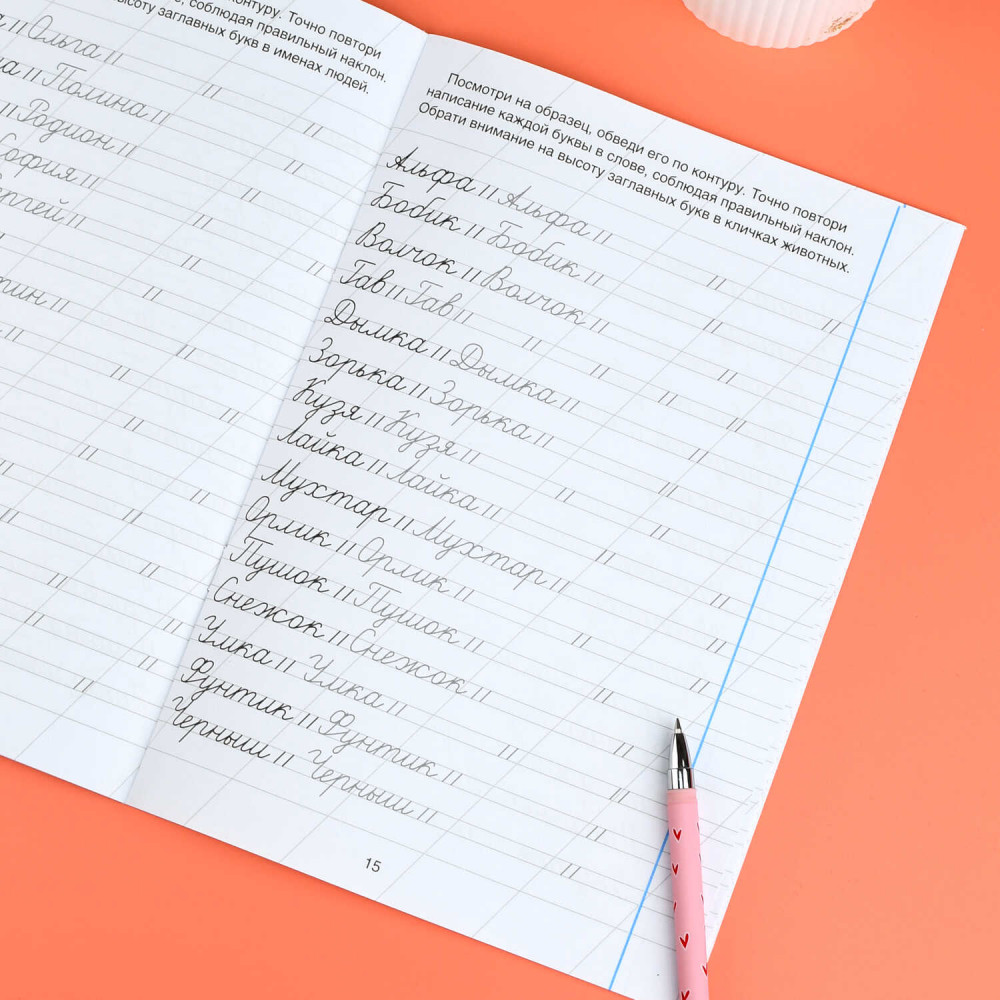 контуру. Точно повтори
, соблюдая правильный наклон.
высоту заглавных букв в именах людей.
Ольга
Полина
Родион
София
Посмотри на образец, обведи его по контуру. Точно повтори
написание каждой буквы в слове, соблюдая правильный наклон.
Обрати внимание на высоту заглавных букв в кличках животных.
Альфа || Альфа ||
Бобик || Бобик || ||
Волчок || Волчок || || ||
Гав || Гав || || ||
Дымка || Дымка || || ||
Зорька || Зорька || ||
Кузя || Кузя || || ||
Лайка || Лайка || ||
Мухтар || Мухтар || ||
Орлик || Орлик || ||
Пушок || Пушок || ||
Снежок || Снежок || ||
Умка || Умка || || ||
Фунтик || Фунтик || ||
Черныш || Черныш || ||
15